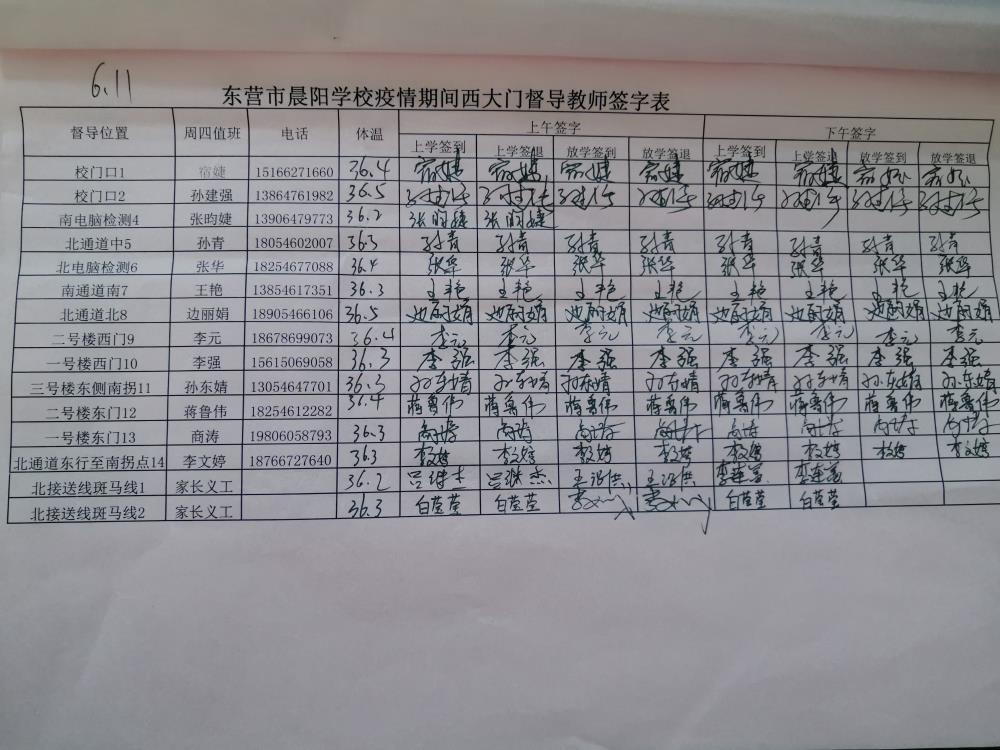 6.11
东营市晨阳学校疫情期间西大门督导教师签字表
督导位置 周四值班 电话 体温 上午签字 下午签字
上学签到 上学签退 放学签到 放学签退 上学签到 上学签退 放学签到 放学签退
校门口1 宿婕 15166271660 36.4
校门口2 孙建强 13864761982 36.5
南电脑检测4 张昀婕 13906479773 36.2 张昀婕 张昀婕
北通道中5 孙青 18054602007 36.3 孙青 孙青 孙青 孙青 孙青 孙青 孙青 孙青
北电脑检测6 张华 18254677088 36.4 张华 张华 张华 张华 张华 张华 张华 张华
南通道南7 王艳 13854617351 36.3 王艳 王艳 王艳 王艳 王艳 王艳 王艳 王艳
北通道北8 边丽娟 18905466106 36.5 边丽娟 边丽娟 边丽娟 边丽娟 边丽娟 边丽娟 边丽娟 边丽娟
二号楼西门9 李元 18678699073 36.4 李元 李元 李元 李元 李元 李元 李元 李元
一号楼西门10 李强 15615069058 36.3 李强 李强 李强 李强 李强 李强 李强 李强
三号楼东侧南拐11 孙东婧 13054647701 36.3 孙东婧 孙东婧 孙东婧 孙东婧 孙东婧 孙东婧 孙东婧 孙东婧
二号楼东门12 蒋鲁伟 18254612282 36.4 蒋鲁伟 蒋鲁伟 蒋鲁伟 蒋鲁伟 蒋鲁伟 蒋鲁伟 蒋鲁伟 蒋鲁伟
一号楼东门13 商涛 19806058793 36.3 商涛 商涛 商涛 商涛 商涛 商涛 商涛 商涛
北通道东行至南拐点14 李文婷 18766727640 36.3 李文婷 李文婷 李文婷 李文婷 李文婷 李文婷 李文婷 李文婷
北接送线斑马线1 家长义工 36.2
北接送线斑马线2 家长义工 36.3 白莹莹 白莹莹 白莹莹 白莹莹